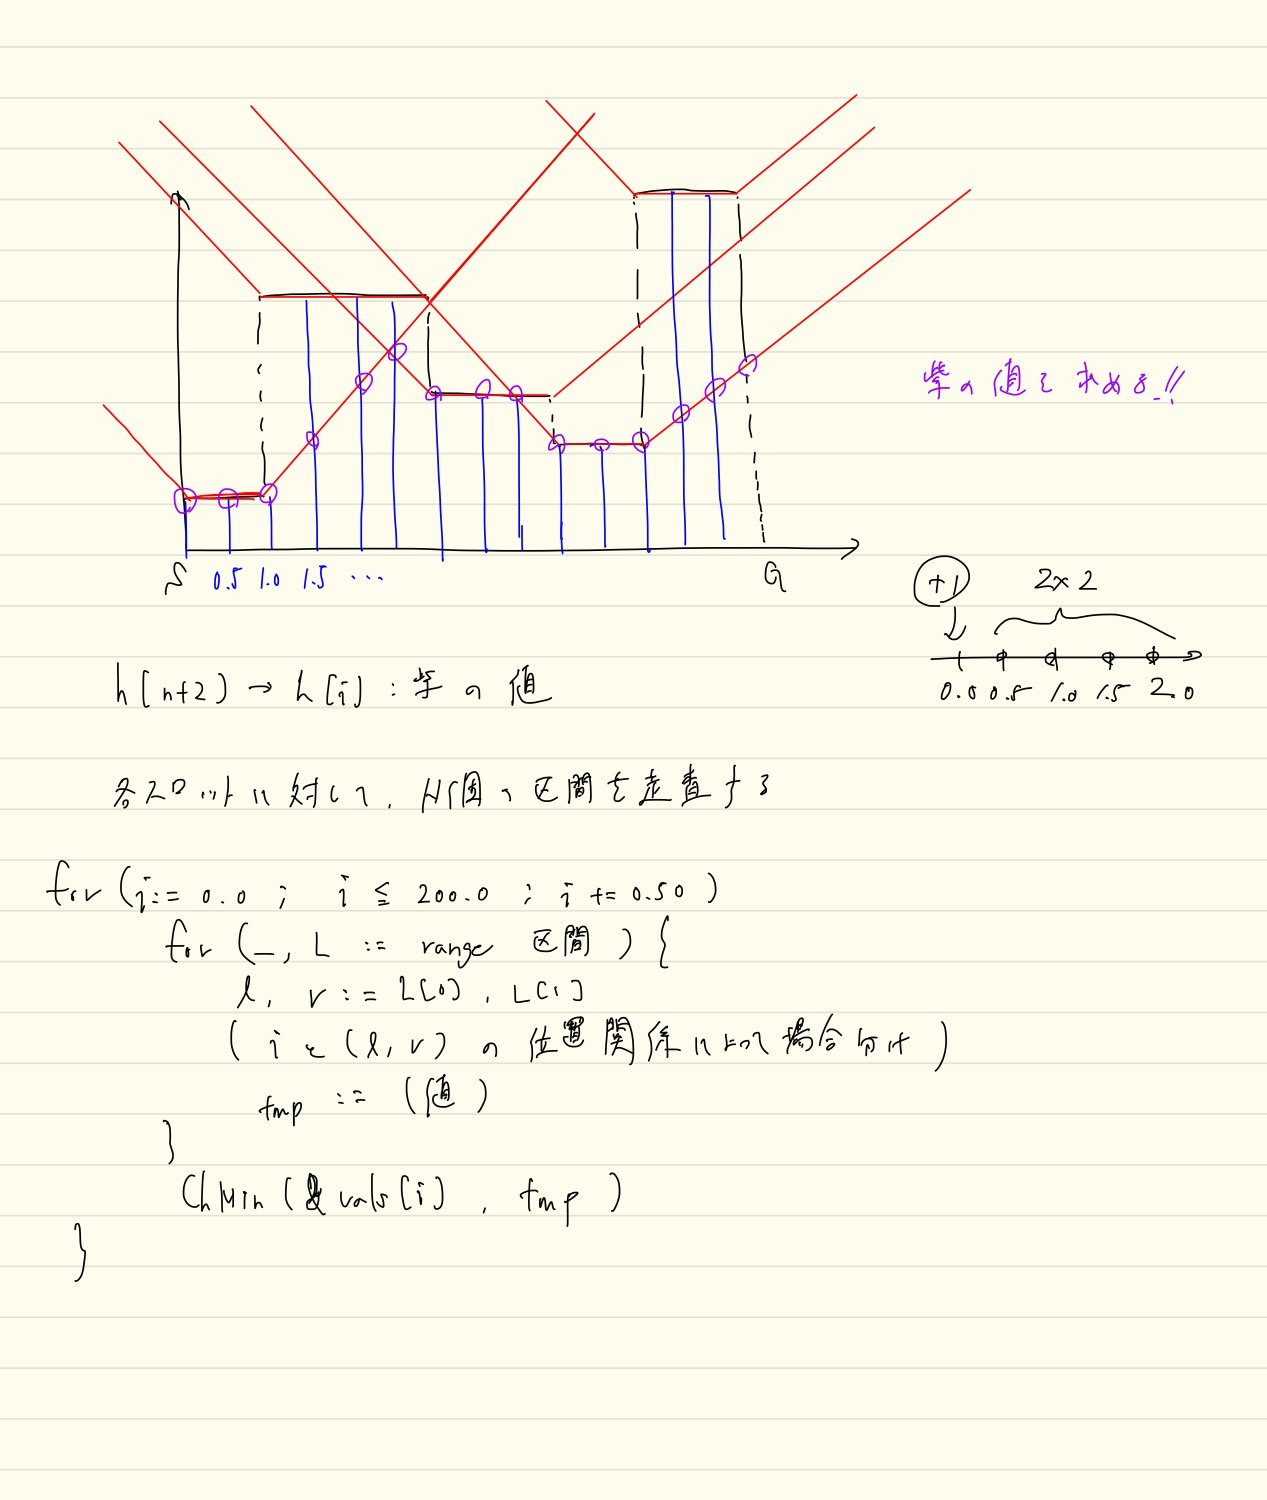 紫の値を求める!!
S 0.5 1.0 1.5 ... G
+1 2×2
0.0 0.5 1.0 1.5 2.0
h[n+2) → h[i] : 紫の値
各スロットに対して、N個の区間を走査する
for (i:= 0.0 ; i ≦ 200.0 ; i += 0.50 )
for (_, L := range 区間 ) {
l, r := L[0], L[1]
( i と (l, r) の位置関係によって場合分け )
tmp := (値)
}
ChMin (& vals[i] , tmp )
}